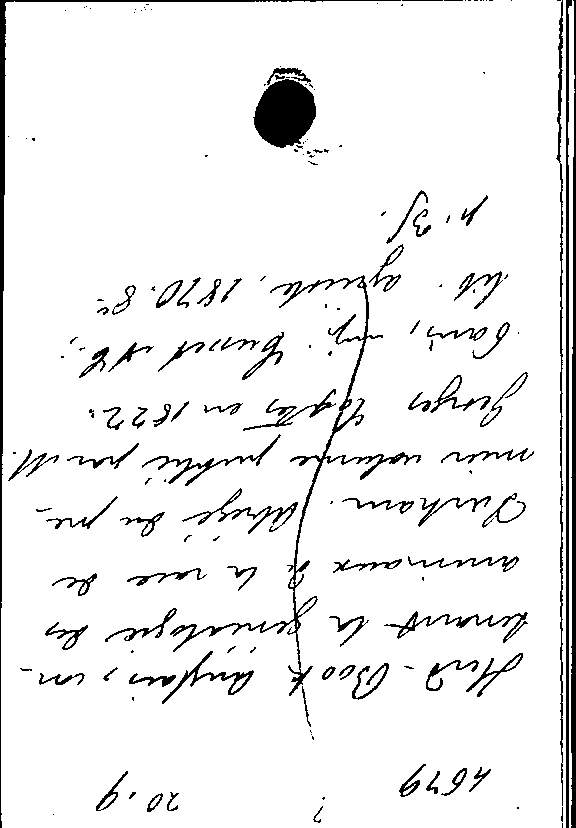 4679 ? 20.9
Herd-Book anglais, con-
tenant la généalogie des
animaux de la race de
Durham. Abrégé du pre-
mier volume publié par M.
Georges Coates en 1822.
Paris, imp. Cusset &C.;
lib. agricole, 1870. 8º
p. 35.